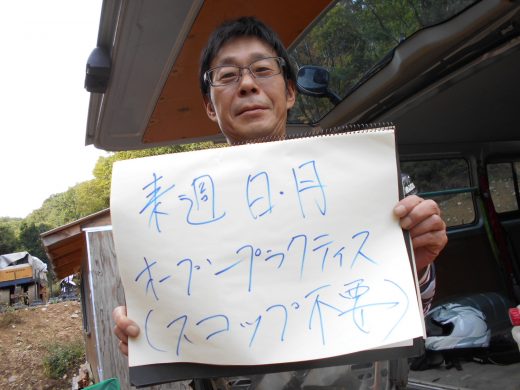 来週 日・月
オープンプラクティス
(スコップ不要)